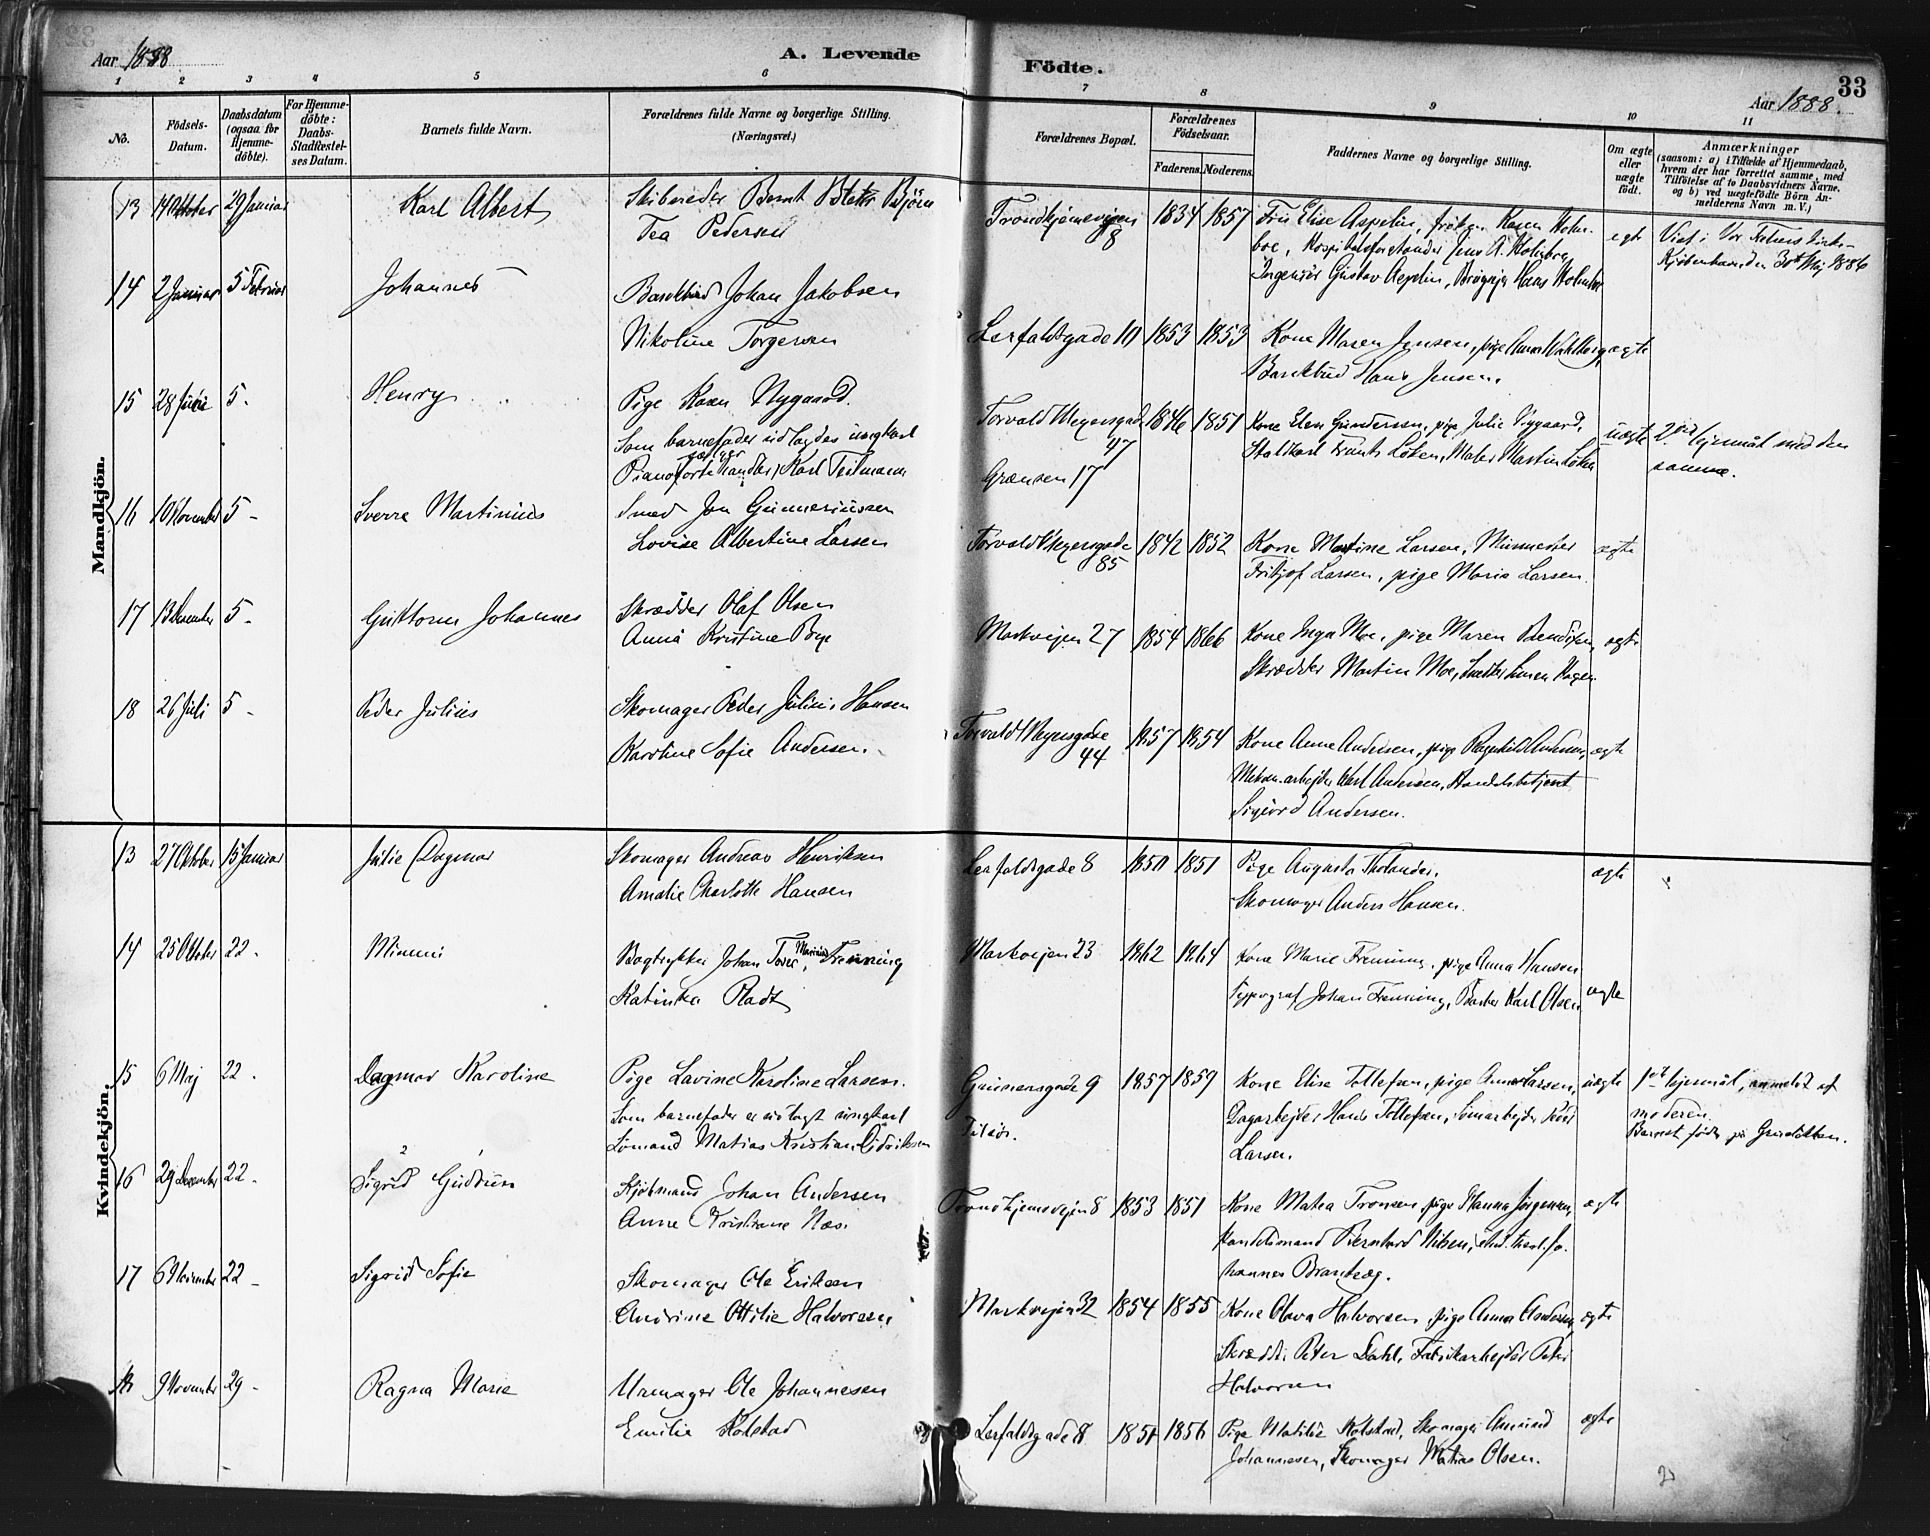 Aar 1888
A. Levende
Födte.
33
Aar 1888.
1 2 3 4 5 6 7 8 9 10 11
No.
Födsels-
Datum.
Daabsdatum
(ogsaa for
Hjemme-
döbte).
For Hjemme-
döbte:
Daabs-
Stadfæstel-
ses Datum.
Barnets fulde Navn.
Forældrenes fulde Navne og borgerlige Stilling.
(Næringsvei.)
Forældrenes Bopæl.
Forældrenes
Födselsaar.
Faderens. Moderens.
Faddernes Navne og borgerlige Stilling.
Om ægte
eller
uægte
födt.
Anmærkninger
(saasom: a) i Tilfælde af Hjemmedaab,
hvem der har forrettet samme, med
Tilföielse af to Daabsvidners Navne,
og b) ved uegtefödte Börn An-
melderens Navn m. V.)
Mandkjön.
13 14 Oktober 29 Januar Karl Albert Skibsreder Bernt Björn
Tea Pedersen
Trondhjemsveien 8 1834 1857 Fru Elise Aspelin, fröken Karen Holm-
boe, Hospitalsforstander Jens A. Holmboe,
Ingeniör Gustav Aspelin, Hans Holmboe
egte Viet i Vor Frelsers Kirke
Kjöbenhavn den 30te Maj 1886
14 2 Januar 5 Februar Johannes Johan Jakobsen
Nikoline Torgersen
Lerfaldsgade 10 1853 1853 Kone Maren Jensen, pige Anna Wahlberg, ægte
Hans Jensen.
15 28 Juni 5. Henry Pige Karen Nygaard.
Som barnefader udlagdes ungkarl
Pianofortehandler Karl Teilmann
Torvald Meyersgade 47
Grænsen 17
1846 1851 Kone Elen Gundersen, pige Julie Nygaard,
Staldkarl Frants Löken, Maler Martin Löken
uægte 2det lejermål med den
samme.
16 10 November 5 - Sverre Martinius Smed Jon Gunneriussen
Lovise Albertine Larsen
Torvald Meyersgade
85
1842 1852 Kone Martine Larsen,
Fritjof Larsen, pige Marie Larsen.
ægte
17 13 December 5 - Guttorm Johannes Skrædder Olaf Olsen
Anna Kristine Bye
Markvejen 27 1854 1866 Kone Inga Moe, pige Maren Bendixen,
Skrædder Martin Moe,
ægte
18 26 Juli 5 - Peder Julius Skomager Peder Julius Hansen
Karoline Sofie Andersen.
Torvald Meyersgade
44
1857 1854 Kone Anne Andersen, pige Ragnhild Andersen,
Mekan.arbejder Karl Andersen, Handelsbetjent
Sigvard Andersen.
ægte
Kvindekjön.
13 27 Oktober 15 Januar Julie Dagmar Skomager Andreas Henriksen
Amalie Charlotte Hansen
Lerfaldsgade 8 1850 1851 Pige Augusta Tholander,
Skomager Anders Hansen.
ægte
14 25 Oktober 22. Mimmi Bogtrykker Johan Marinius Frenning
Katinka Radt
Markvejen 23 1862 1864 Kone Marie Frenning, pige Anna Hansen
Typograf Johan Frenning, Barber Karl Olsen
ægte
15 6 Maj 22. Dagmar Karoline Pige Lavine Karoline Larsen.
Som barnefader er udlagt ungkarl
Sömand Matias Kristian Didriksen
Grünersgade 9
Tilsös.
1857 1859 Kone Elise Tollefsen, pige Anna Larsen,
Dagarbejder Hans Tollefsen,
Larsen.
uægte 1ste lejermål, anmeldt af
moderen.
Barnet födt på Grünelökken.
16 29 December 22 - Sigrid Gudrun Kjöbmand Johan Andersen
Anne Kristiane Næs.
Trondhjemsvejen 8 1853 1851 Kone Matea Tronsen, pige Hanna Jörgensen,
Handelsmand Bernhard Nilsen, stud. theol. Jo-
hannes Brandtzæg.
ægte
17 6 November 22 - Sigrid Sofie Skomager Ole Eriksen
Andrine Ottilie Halvorsen
Markvejen 32 1854 1855 Kone Olava Halvorsen, pige Anna Andersen,
Skrædder Peter Dahl, Fabrikarbejder Peter
Halvorsen
ægte
18 9 November 29 - Ragna Marie Urmager Ole Johannesen
Emilie Kolstad
Lerfaldsgade 8 1851 1856 Pige Matilde Kolstad, Skomager Amund
Johannesen, Skomager Matias Olsen.
ægte